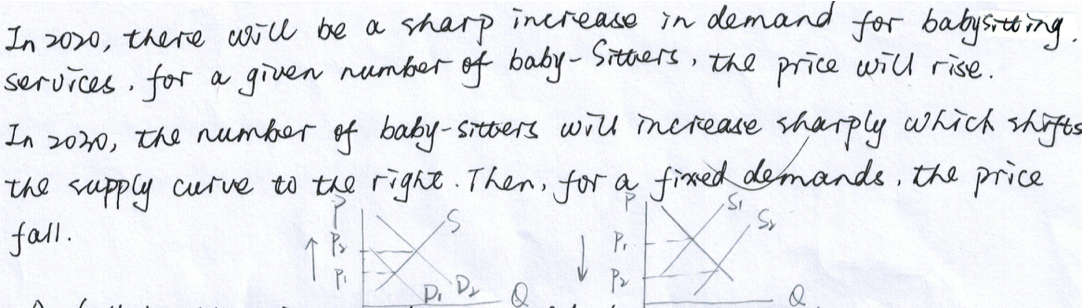 In 2020, there will be a sharp increase in demand for babysitting
services. for a given number of baby-Sitters, the price will rise.
In 2030, the number of baby-sitters will increase sharply which shifts
the supply curve to the right. Then, for a fixed demands, the price
fall.
P S P S1 S2
↑ P2 ↓ P1
P1 P2
D1 D2 Q Q